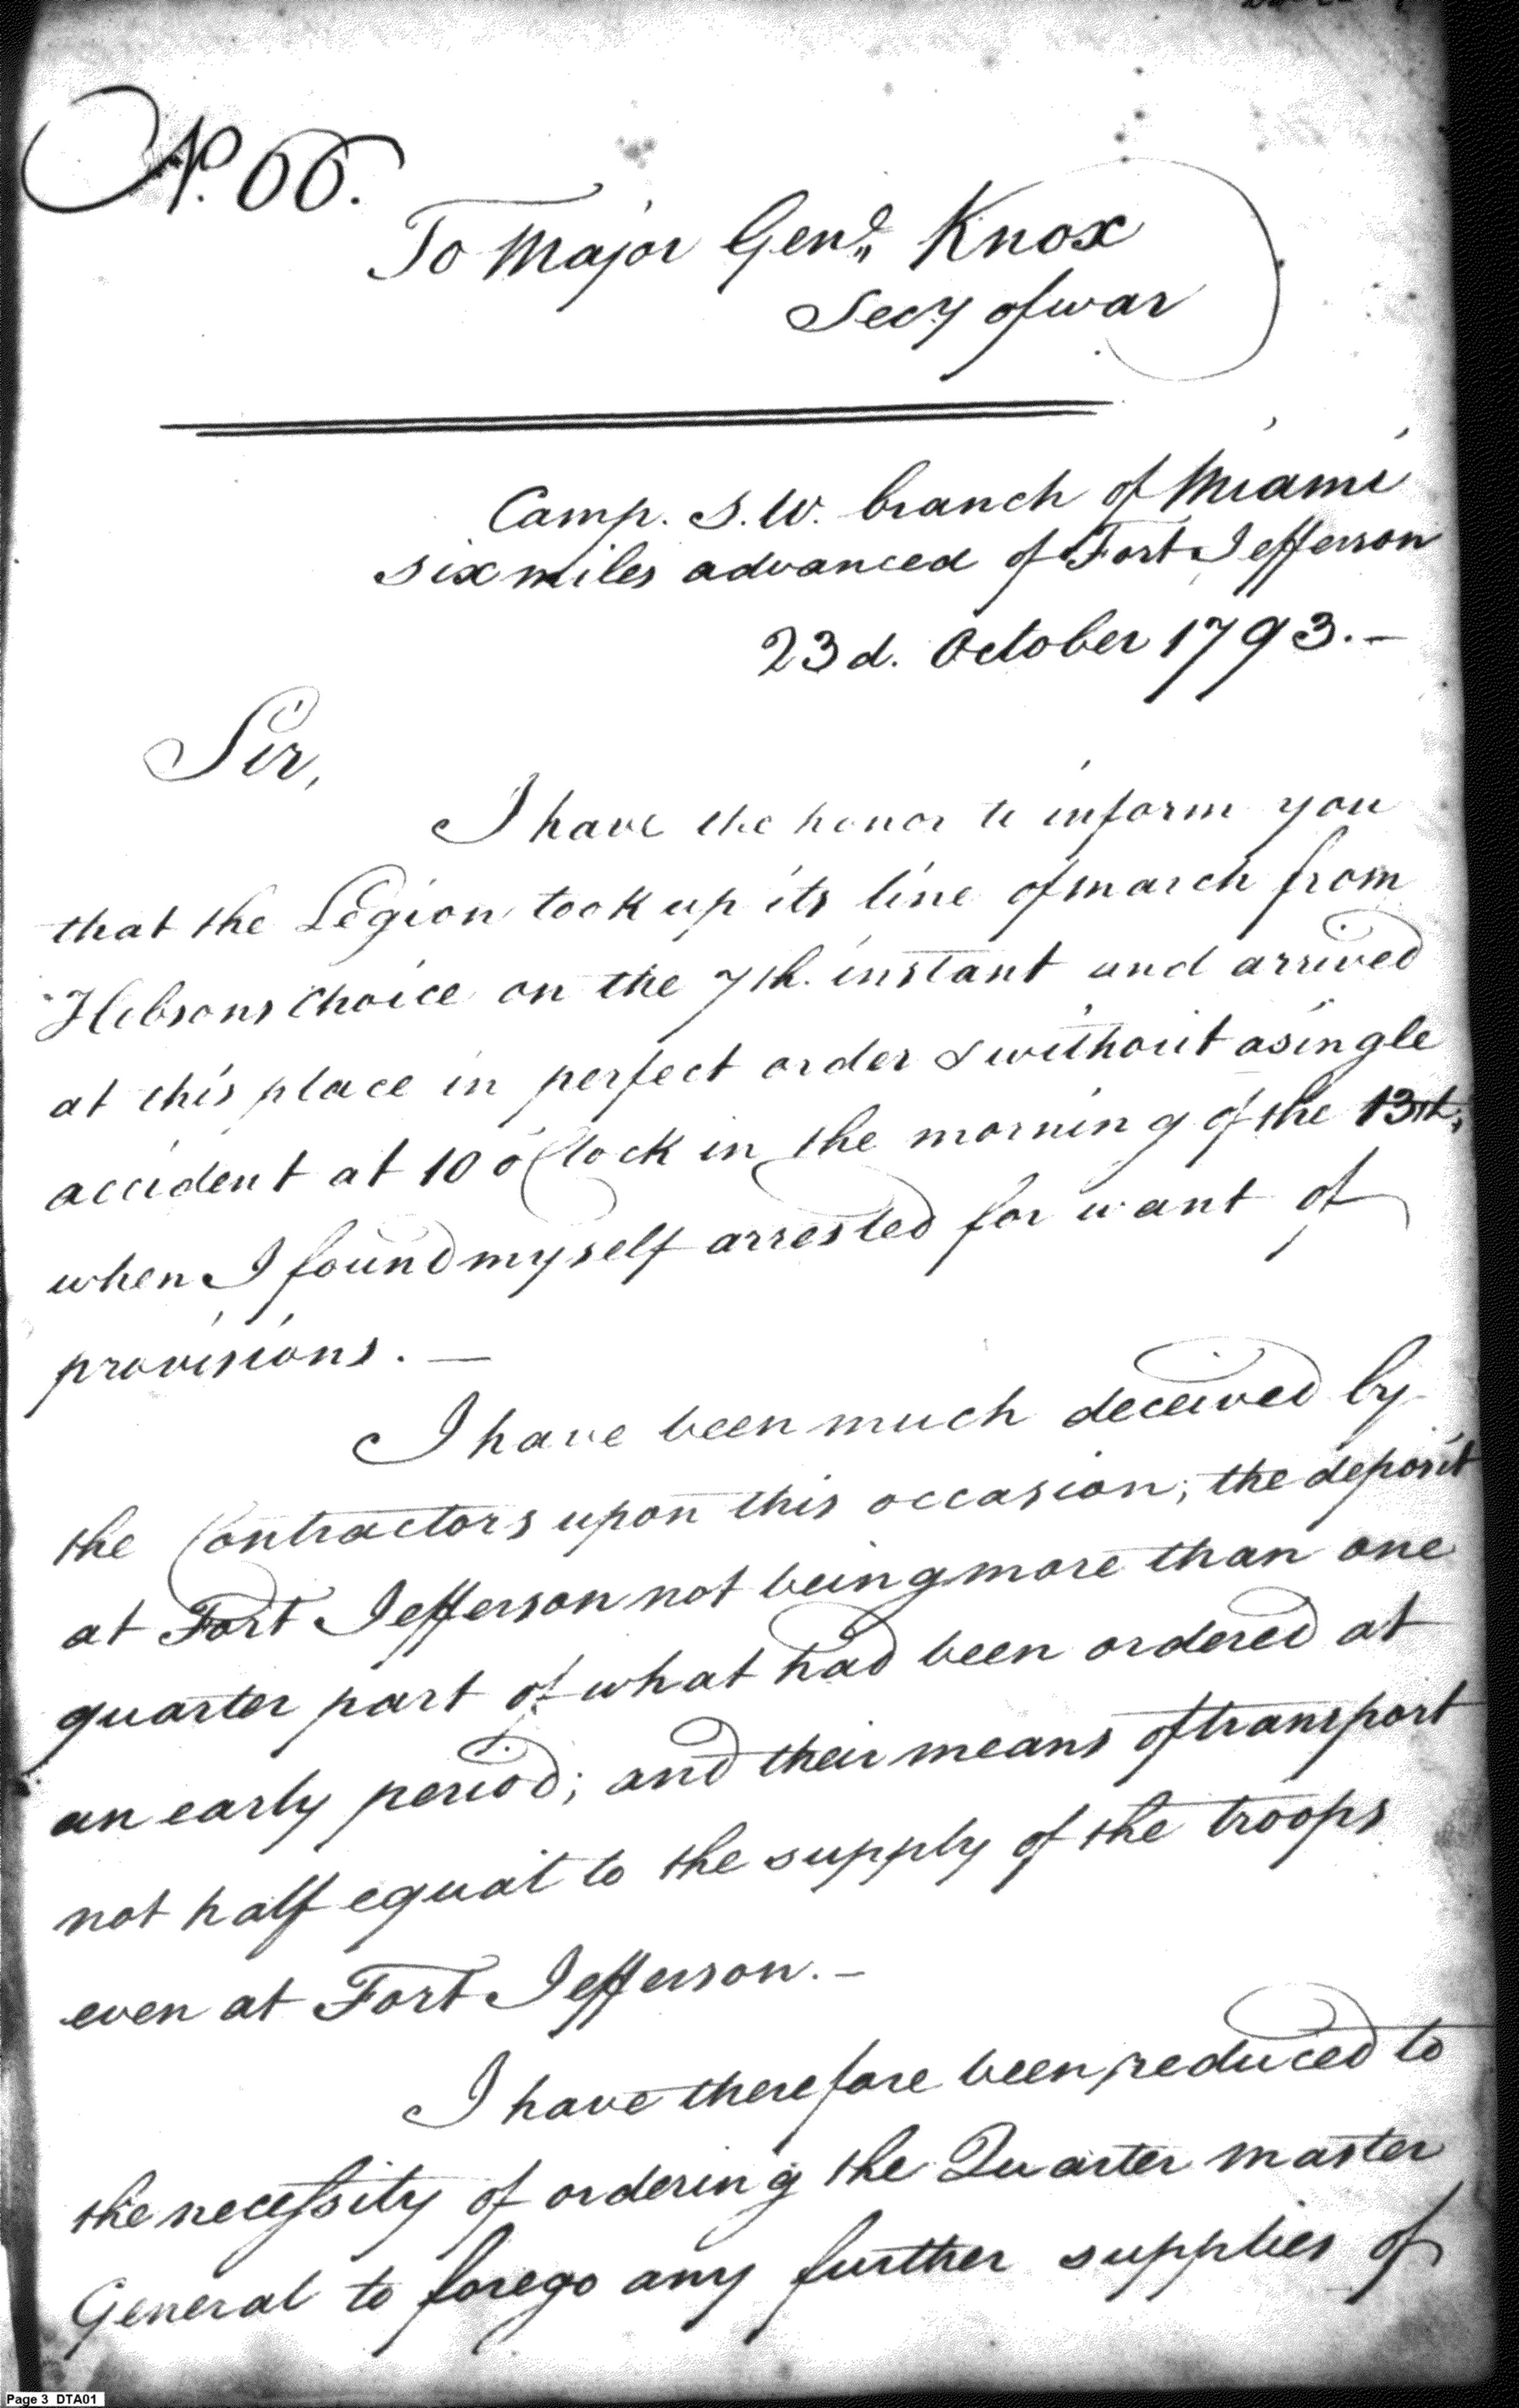 No. 66.
To Major Genl. Knox
Secy of war
Camp. S.W. branch of Miami
six miles advanced of Fort Jefferson
23d. October 1793.—
Sir,
I have the honor to inform you
that the Legion took up its line of march from
Hobsons Choice on the 7th. instant and arrived
at this place in perfect order & without a single
accident at 10 oClock in the morning of the 13th,
when I found myself arrested for want of
provisions.—
I have been much deceived by
the Contractors upon this occasion; the deposit
at Fort Jefferson not being more than one
quarter part of what had been ordered at
an early period; and their means of transport
not half equal to the supply of the troops
even at Fort Jefferson.—
I have therefore been reduced to
the necessity of ordering the Quarter master
General to forego any further supplies of
Page 3 DTA01